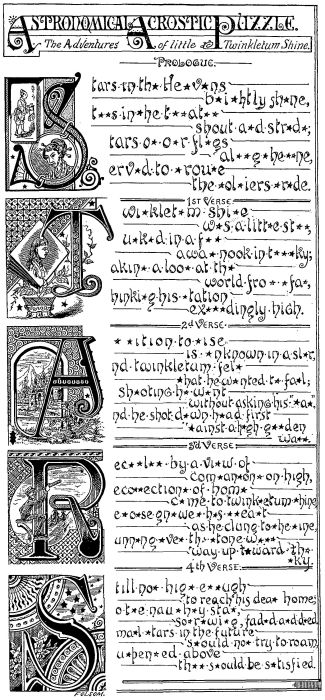 ASTRONOMICAL ACROSTIC PUZZLE.
The Adventures of little Twinkletum Shine.
PROLOGUE.
S
tars·in·th*·He*v*ns
b*i*htly sh*ne,
t**s·in·he*t**at**
shout·a*d·str*d*;
tars·o*o*r·fl*gs
al**g·he**ne,
erv*d·to·*rou*e
the·*ol*iers·*r*de.
1ST VERSE.
T
wi*klet*m·shi*e
w*s·a·litt*e·st**,
u*k*d·in·a·f**
awa*·nook·in·t***ky;
akin*·a·loo*·at·th*
world·fro**·fa*,
hinki*g·his·*tation
ex***dingly·high.
2d VERSE.
A
**ition·to·*ise
is·*nknown·in·a·st*r,
nd·twinkletum·fel*
*hat·he·w*nted·t*·fa*l;
sh*oting·h*·w*nt
without·asking·his·"*a*,"
nd·he·shot·d*wn·h*ad·first
*ainst·a·h*gh·g**den
wa**.
3d VERSE
R
ec**l**·by·a·vi*w·of
com*an*on·on·high,
eco**ection*·of·hom*
c*me·to·twink*etum·*hine,
e*o*se·gn*we*·his·**ea*t
as·he·clung·to·*he·*ine,
unn*ng·*ve*·th**tone·w***
way·up·t*ward·th*
*ky.
4th VERSE.
S
till·no*·hig*·e**ugh
to·reach·his·dea*·home;
o*t*e·nau*h*y·sta*,
so*r*wi*g,·fad*d·a*d·d*ed
ma*l·*tars·in·the·future
s*ould·no*·try·to·roam,
u*pen*ed·above
th***s*ould·be·s*tisfied.
FOLSOM.